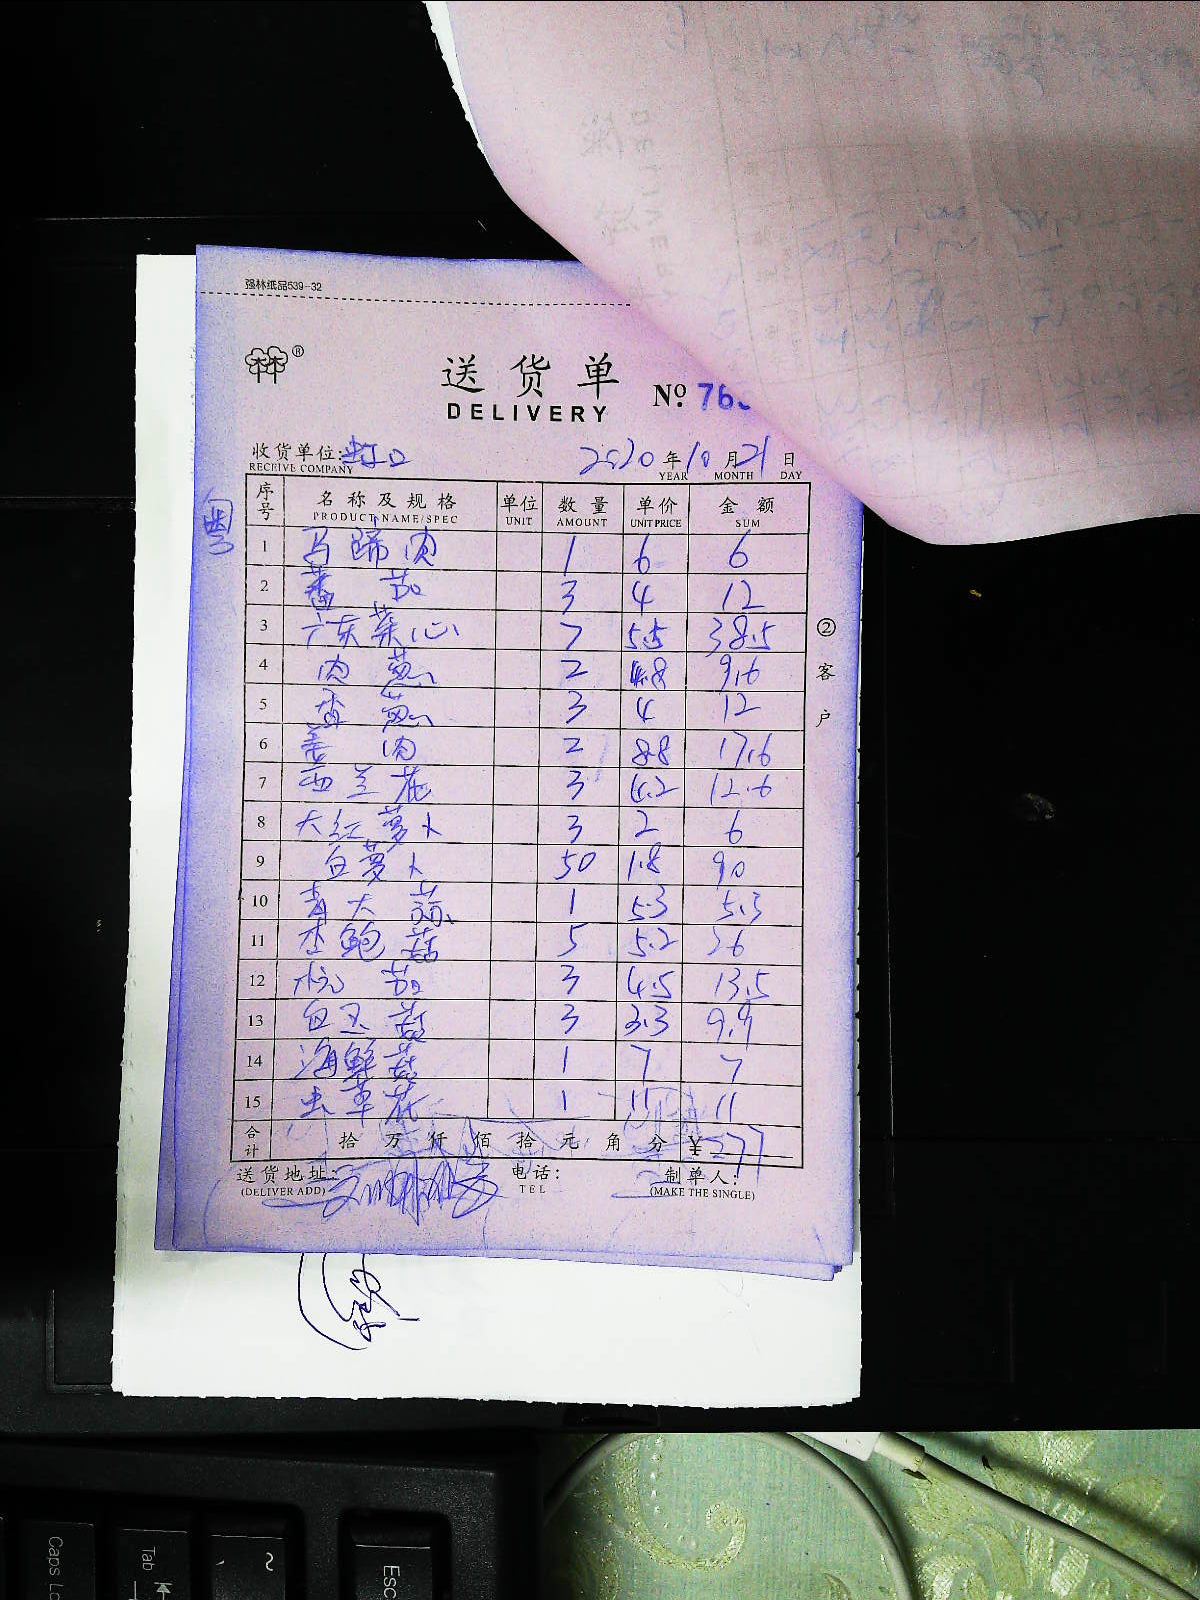 强林纸品539-32
送货单
DELIVERY
№ 763
收货单位:虹口 2020年10月21日
RECEIVE COMPANY YEAR MONTH DAY
粤
序号 名称及规格 单位 数量 单价 金额
PRODUCT NAME/SPEC UNIT AMOUNT UNIT PRICE SUM
1 马蹄肉 1 6 6
2 蕃茄 3 4 12
3 广东菜心 7 5.5 38.5
4 肉葱 2 4.8 9.6
5 香葱 3 4 12
6 姜肉 2 8.8 17.6
7 西兰花 3 4.2 12.6
8 大红萝卜 3 2 6
9 白萝卜 50 1.8 90
10 青大蒜 1 5.3 5.3
11 杏鲍菇 5 5.2 26
12 杭茄 3 4.5 13.5
13 白玉菇 3 3.3 9.9
14 海鲜菇 1 7 7
15 虫草花 1 11 11
合计 拾 万 仟 佰 拾 元 角 分 ¥277
送货地址: 电话: 制单人:
(DELIVER ADD) TEL (MAKE THE SINGLE)
②客户
Caps Lo
Tab
~
Esc